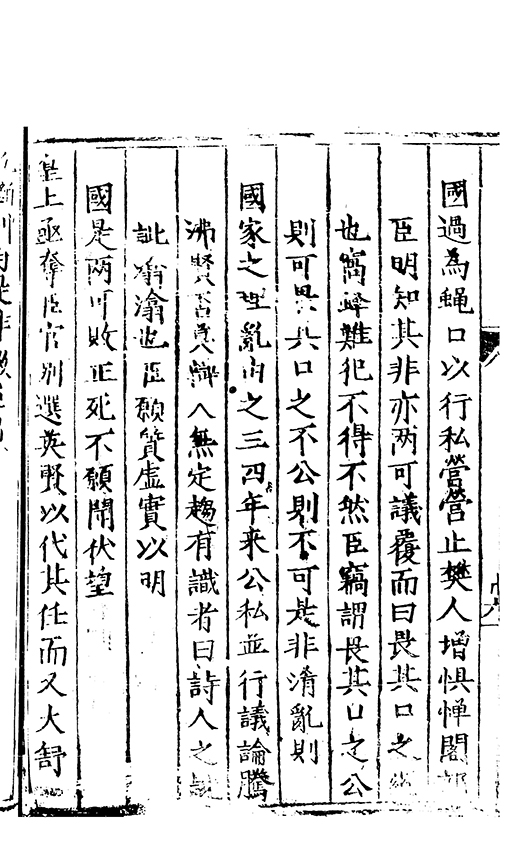 國過為蝇口以行私營營止樊人增惧惮閣部
臣明知其非亦两可議覆而曰畏其口之
也窩蜂難犯不得不然臣竊謂畏其口之公
則可畏其口之不公則不可是非淆亂則
國家之理亂由之三四年来公私並行議論騰
沸賢否人無定趨有識者曰詩人之
訿瀹瀹也臣願質虛實以明
國是两可敗正死不願聞伏望
皇上亟奪臣官别選英賢以代其任而又大